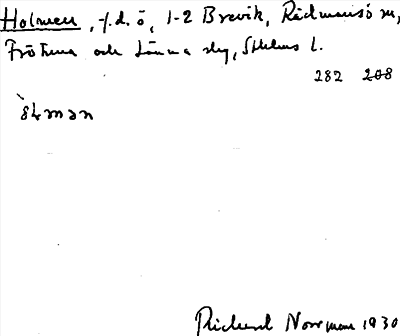 Holmen, f.d. ö, 1-2 Brevik, Rådmansö sn,
Frötuna och Länna slg, Sthlms l.
282 208
`ɷ4mən
Rickard Norrman 1930